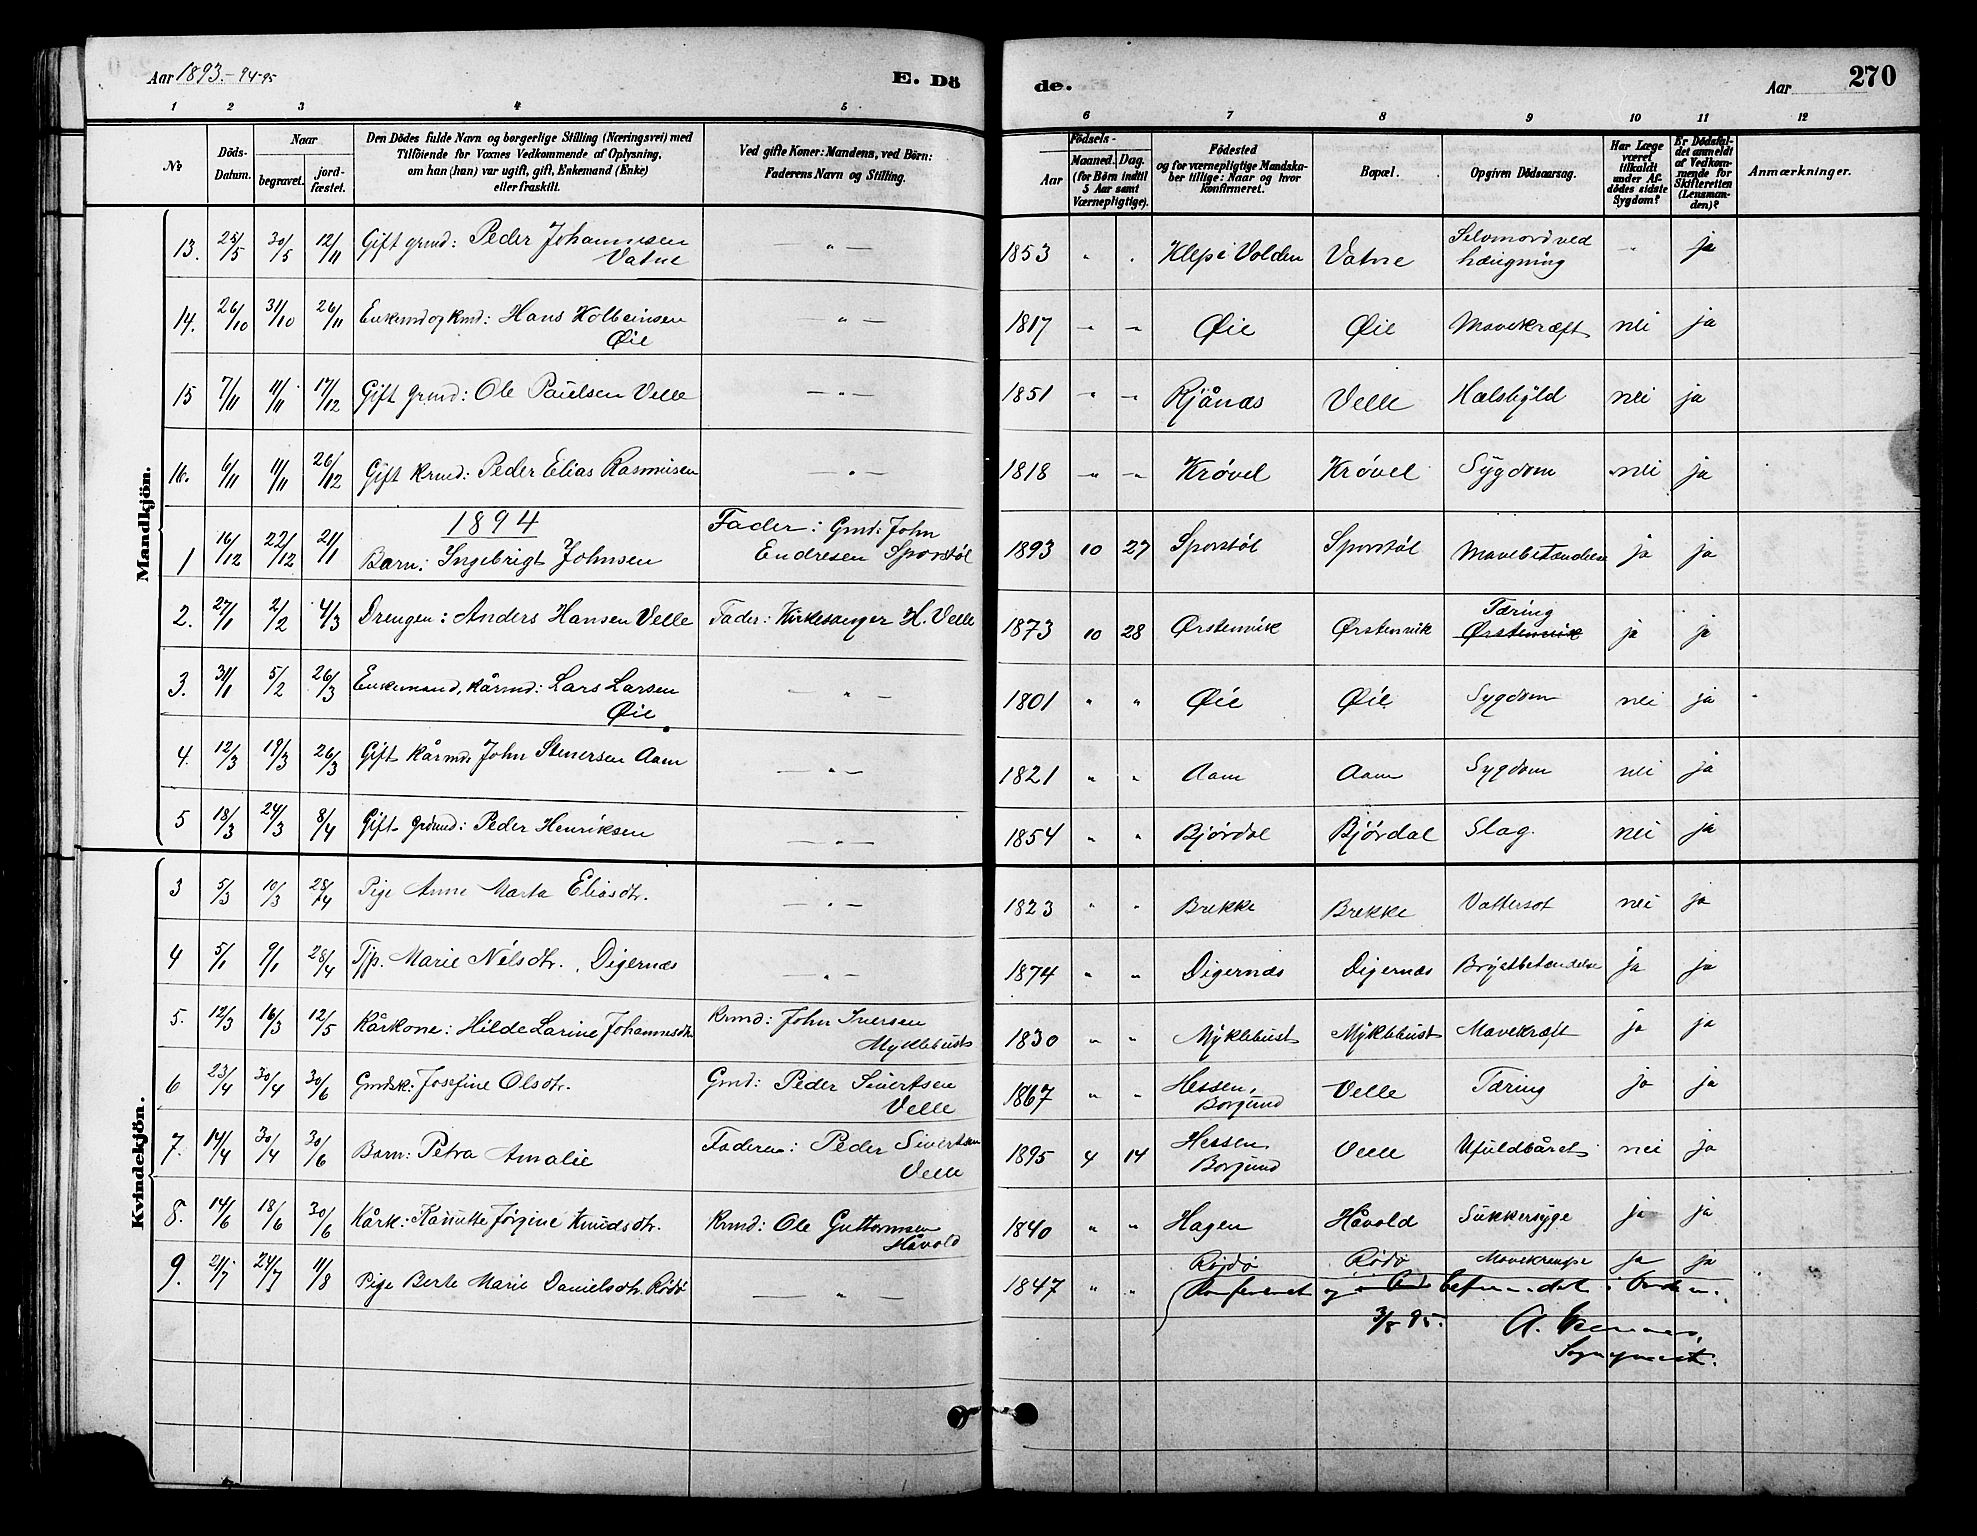 Aar 1893.-94-95
E. Dö
de.
Aar
270
1 2 3 4 5 6 7 8 9 10 11 12
No
Döds-
Datum.
Naar
begravet.
jord-
fæstet.
Den Dödes fulde Navn og borgerlige Stilling (Næringsvei) med
Tilföiende for Voxnes Vedkommende af Oplysning,
om han (hun) var ugift, gift, Enkemand (Enke)
eller fraskilt.
Ved gifte Koner: Mandens, ved Börn:
Faderens Navn og Stilling.
Födsels-
Aar
Maaned. Dag.
(for Börn indtil
5 Aar samt
Værnepligtige).
Födested
og for værnepligtige Mandska-
ber tillige: Naar og hvor
konfirmeret.
Bopæl.
Opgiven Dödsaarsag.
Har Læge
været
tilkaldt
under Af-
dödes sidste
Sygdom?
Er Dödsfal-
det anmeldt
af Vedkom-
mende for
Skifteretten
(Lensman-
den)?
Anmærkninger.
Mandkjön.
13. 25/5 30/5 12/11 Gift grmd: Peder Johannesen
Vatne
— " — 1853 " " Klep i Volden Vatne Selvmord ved
hængning
" ja
14. 26/10 31/10 26/11 Enkemd og kmd: Hans Holbeinsen
Øie
— " — 1817 " " Øie Øie Mavekræft nei ja
15 7/11 11/11 17/12 Gift grmd: Ole Paulsen Velle — " — 1851 " " Rjånæs Velle Halsbyld nei ja
16. 6/11 11/11 26/12 Gift krmd: Peder Elias Rasmusen — " — 1818 " " Krøvel Krøvel Sygdom nei ja
1894
1 16/12 22/12 21/1 Barn: Ingebrigt Johnsen
Fader: Gmd: John
Endresen Sporstøl
1893 10 27 Sporstøl Sporstøl Mavebetændelse ja ja
2. 27/1 2/2 4/3 Drengen: Anders Hansen Velle Fader: Kirkesanger H. Velle 1873 10 28 Ørstenvik Ørstenvik Tæring
Ørstenvik
ja ja
3. 31/1 5/2 26/3 Enkemand, kårmd: Lars Larsen
Øie
— " — 1801 " " Øie Øie Sygdom nei ja
4. 12/3 19/3 26/3 Gift kårmd John Stenersen Aam — " — 1821 " " Aam Aam Sygdom nei ja
5 18/3 24/3 8/4 Gift grdmd: Peder Henriksen — " — 1854 " " Bjørdal Bjørdal Slag. nei ja
Kvindekjön.
3 5/3 10/3 28/4 Pige Anne Marta Eliasdtr. — " — 1823 " " Brekke Brekke Vattersot nei ja
4 5/1 9/1 28/4 Tjp. Marie Nilsdtr. Digernæs — " — 1874 " " Digernæs Digernæs Brystbetændelse ja ja
5. 12/3 16/3 12/5 Kårkone: Hilde Larine Johannesdtr Krmd: John Iversen
Myklebust
1830 " " Myklebust Myklebust Mavekræft ja ja
6 23/4 30/4 30/6 Gmdsk: Josefine Olsdtr. Gmd: Peder Sivertsen
Velle
1867 " " Hessen,
Borgund
Velle Tæring ja ja
7. 14/4 30/4 30/6 Barn: Petra Amalie Faderen: Peder Sivertsen
Velle
1895 4 14 Hessen
Borgund
Velle Ufuldbåret nei ja
8. 14/6 18/6 30/6 Kårk: Kanutte Jørgine Knudsdtr. Krmd: Ole Guttormsen
Håvold
1840 " " Hagen Håvold Sukkersyge ja ja
9. 21/7 24/7 11/8 Pige Berte Marie Danielsdtr. Rødø — " — 1847 " " Røjdø Rødø Mavekrampe ja ja
Konfereret og befundet i Orden.
3/8 95.
A.
Sogneprest.